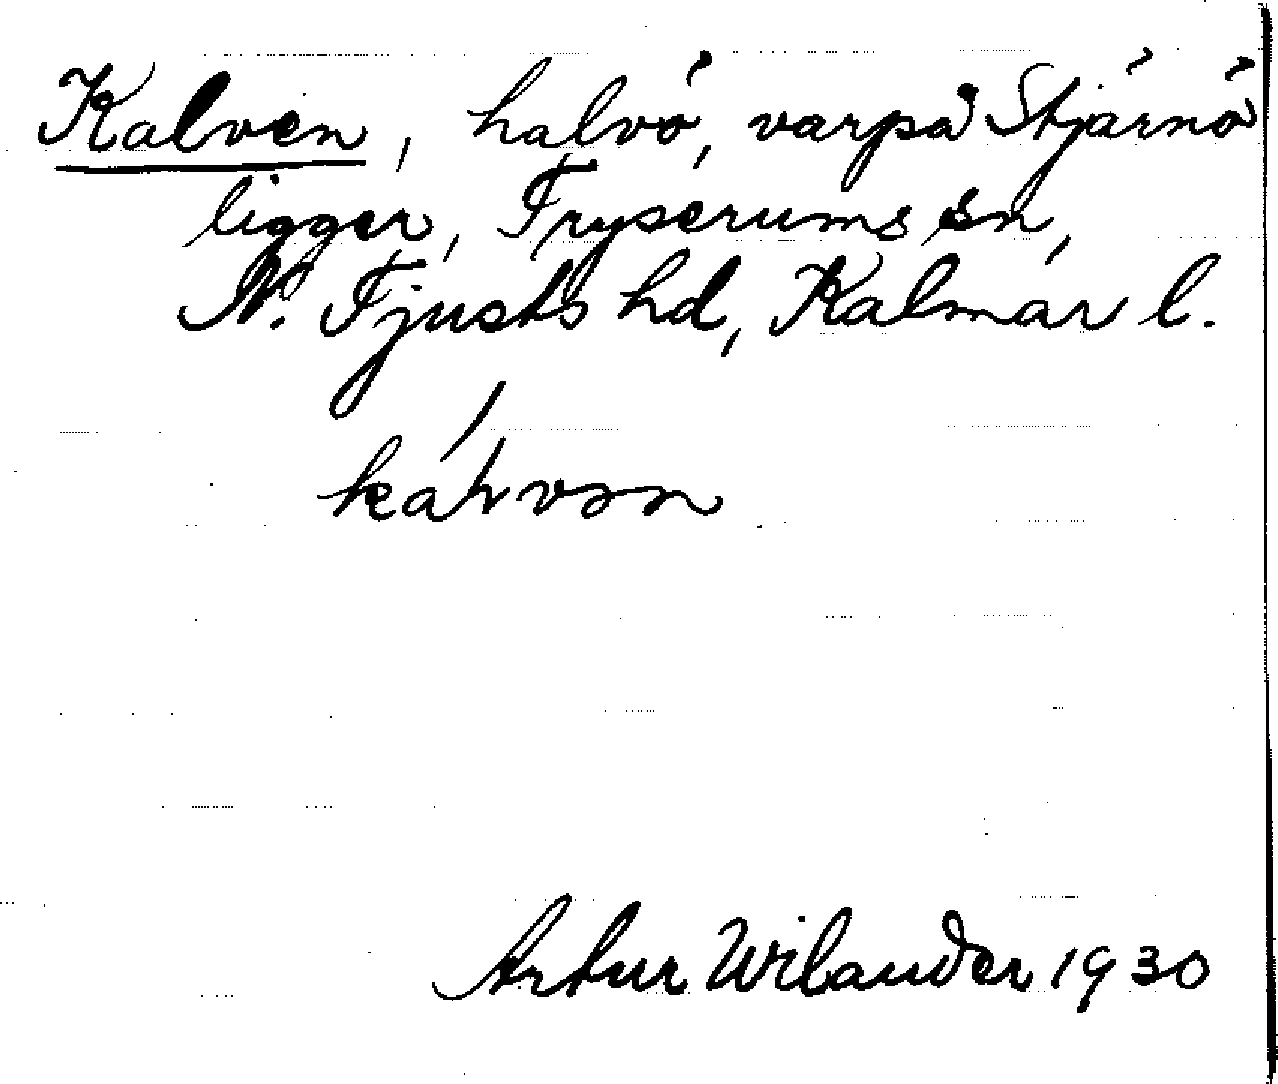 Kalven, halvö, varpå Stjärnö
ligger, Tryserums sn,
N. Tjusts hd, Kalmar l.
Artur Wilander 1930